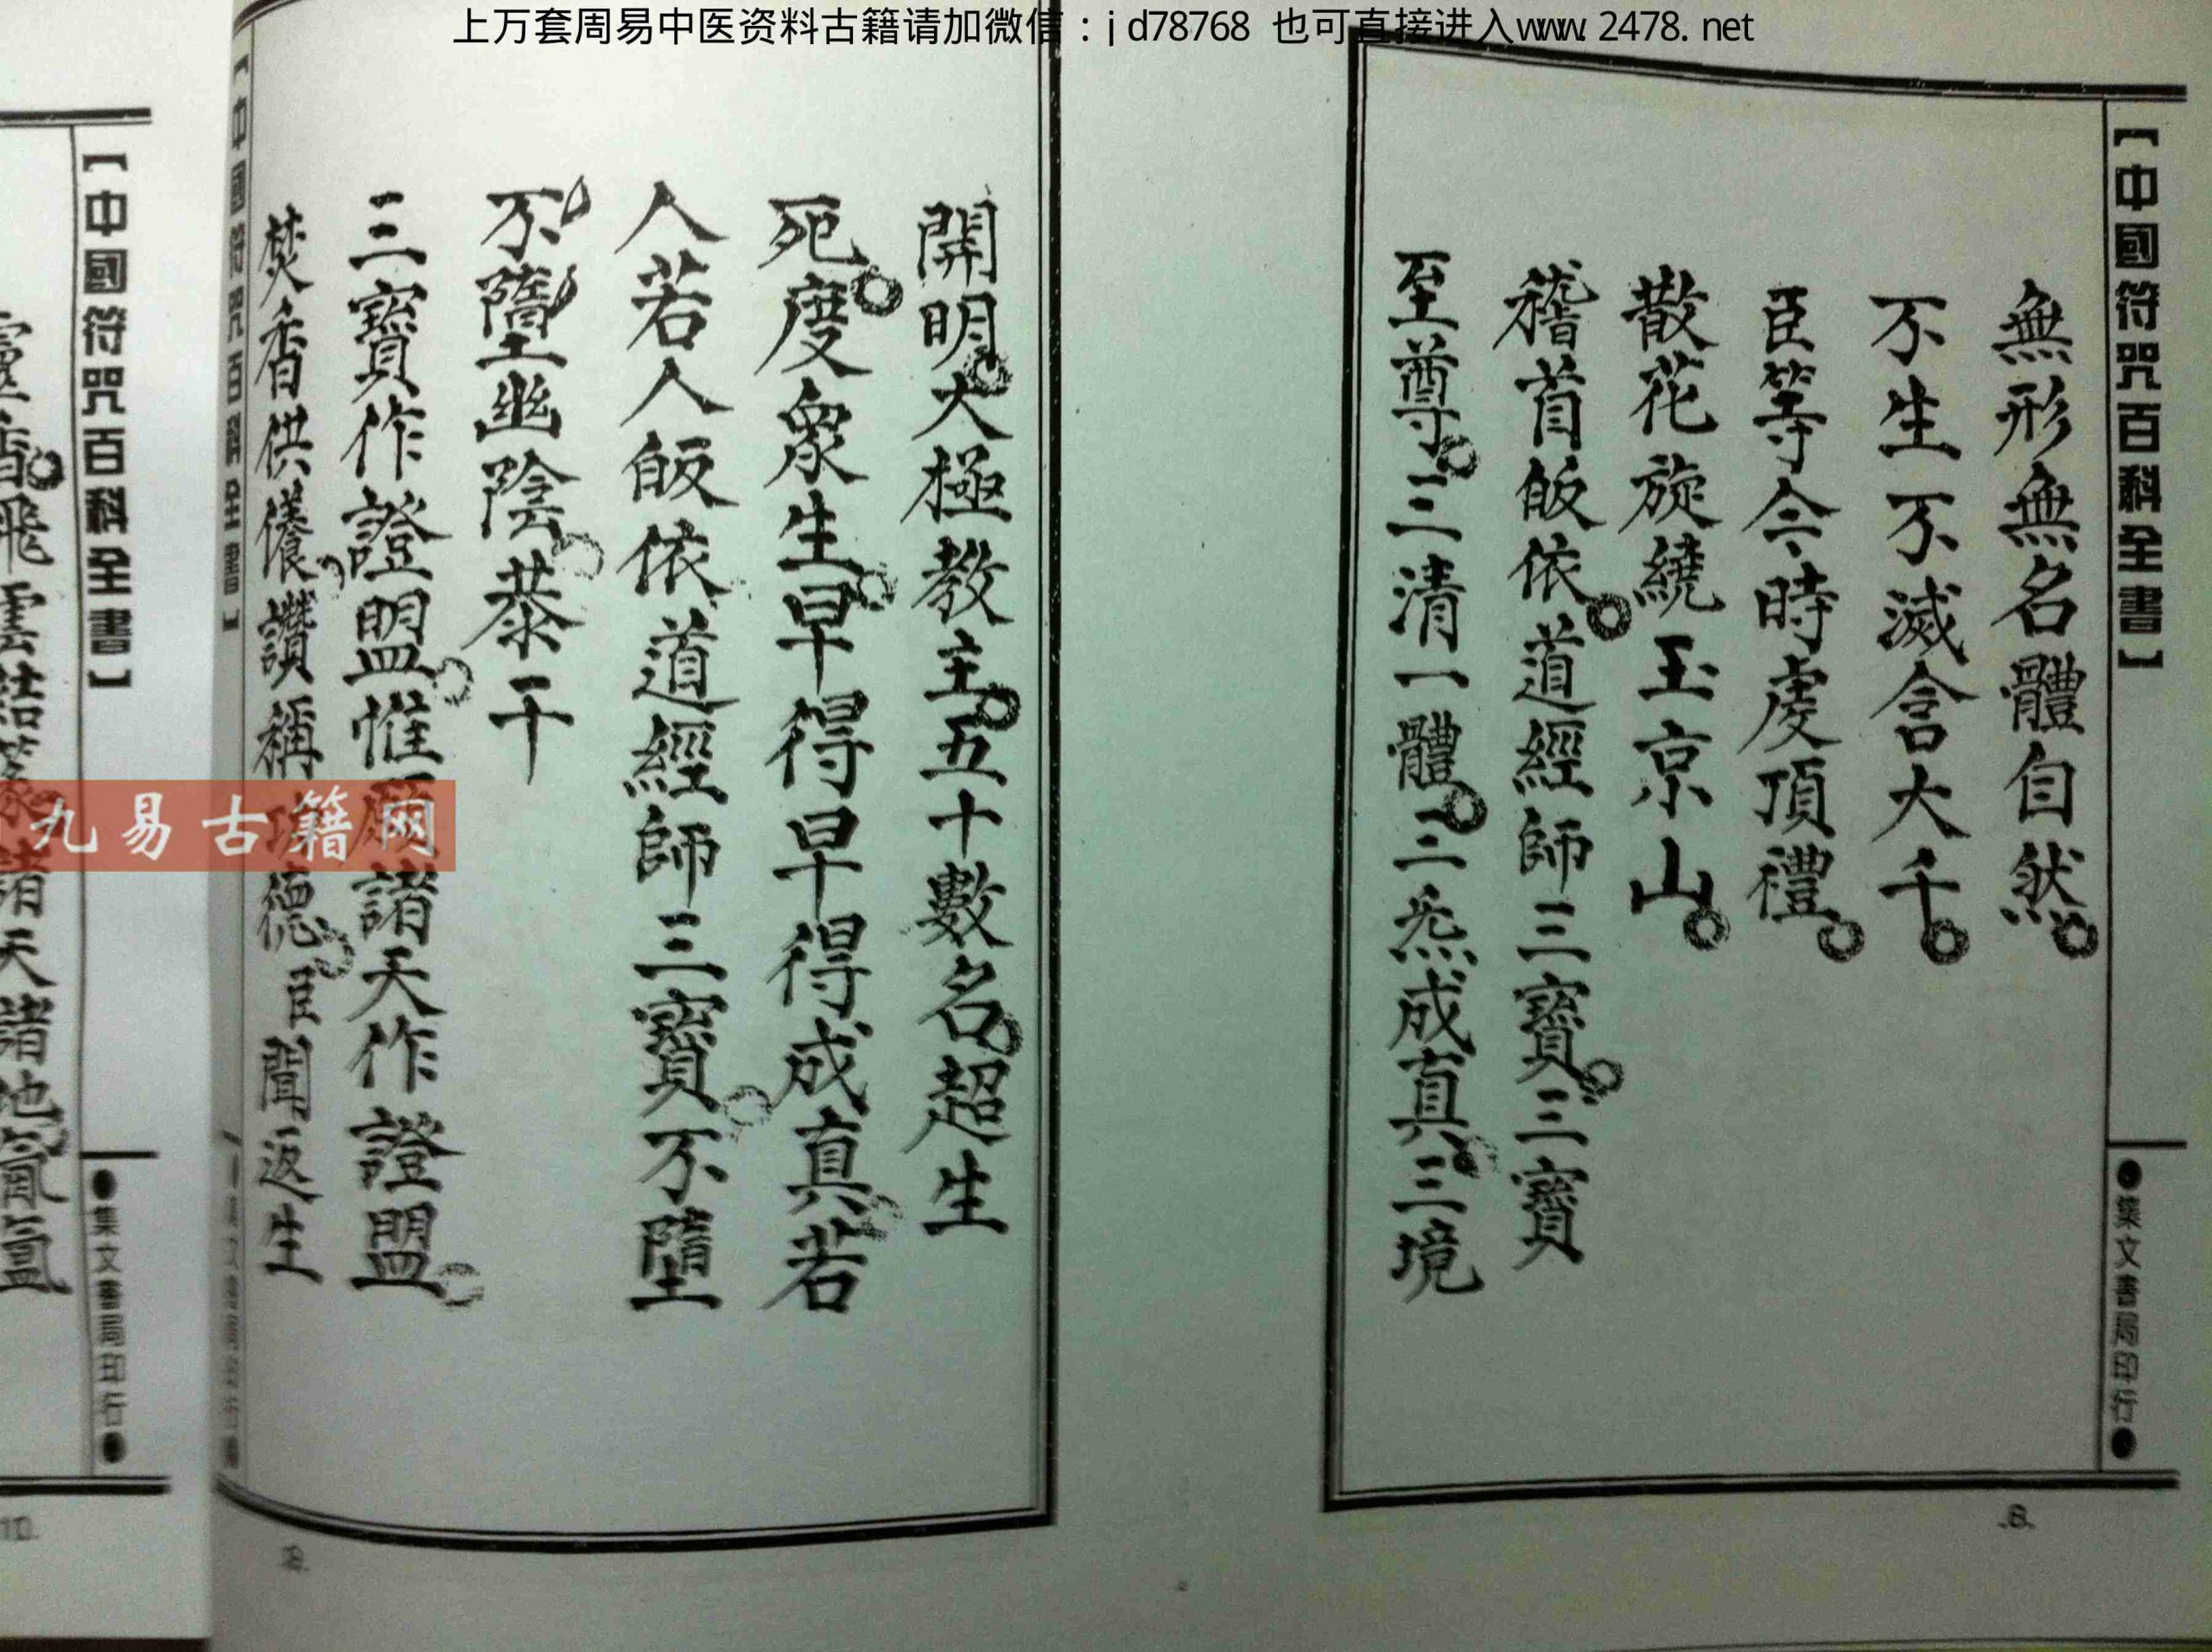 上万套周易中医资料古籍请加微信：jd78768 也可直接进入www.2478.net
【中國符咒百科全書】
●集文書局印行●
無形無名體自然
不生不滅含大千
臣等今時虔頂禮
散花旋繞玉京山
稽首皈依道經師三寶三寶
至尊三清一體三炁成真三境
-8-
開明大極教主五十數名超生
死度衆生早得早得成真若
人若人皈依道經師三寶不墮
不墮幽陰恭干
三寶作證盟惟願諸天作證盟
焚香供養讚稱功德臣聞返生
【中國符咒百科全書】
九易古籍网
【中國符咒百科全書】
●集文書局印行●
飛雲結篆諸天諸地氤氳
10